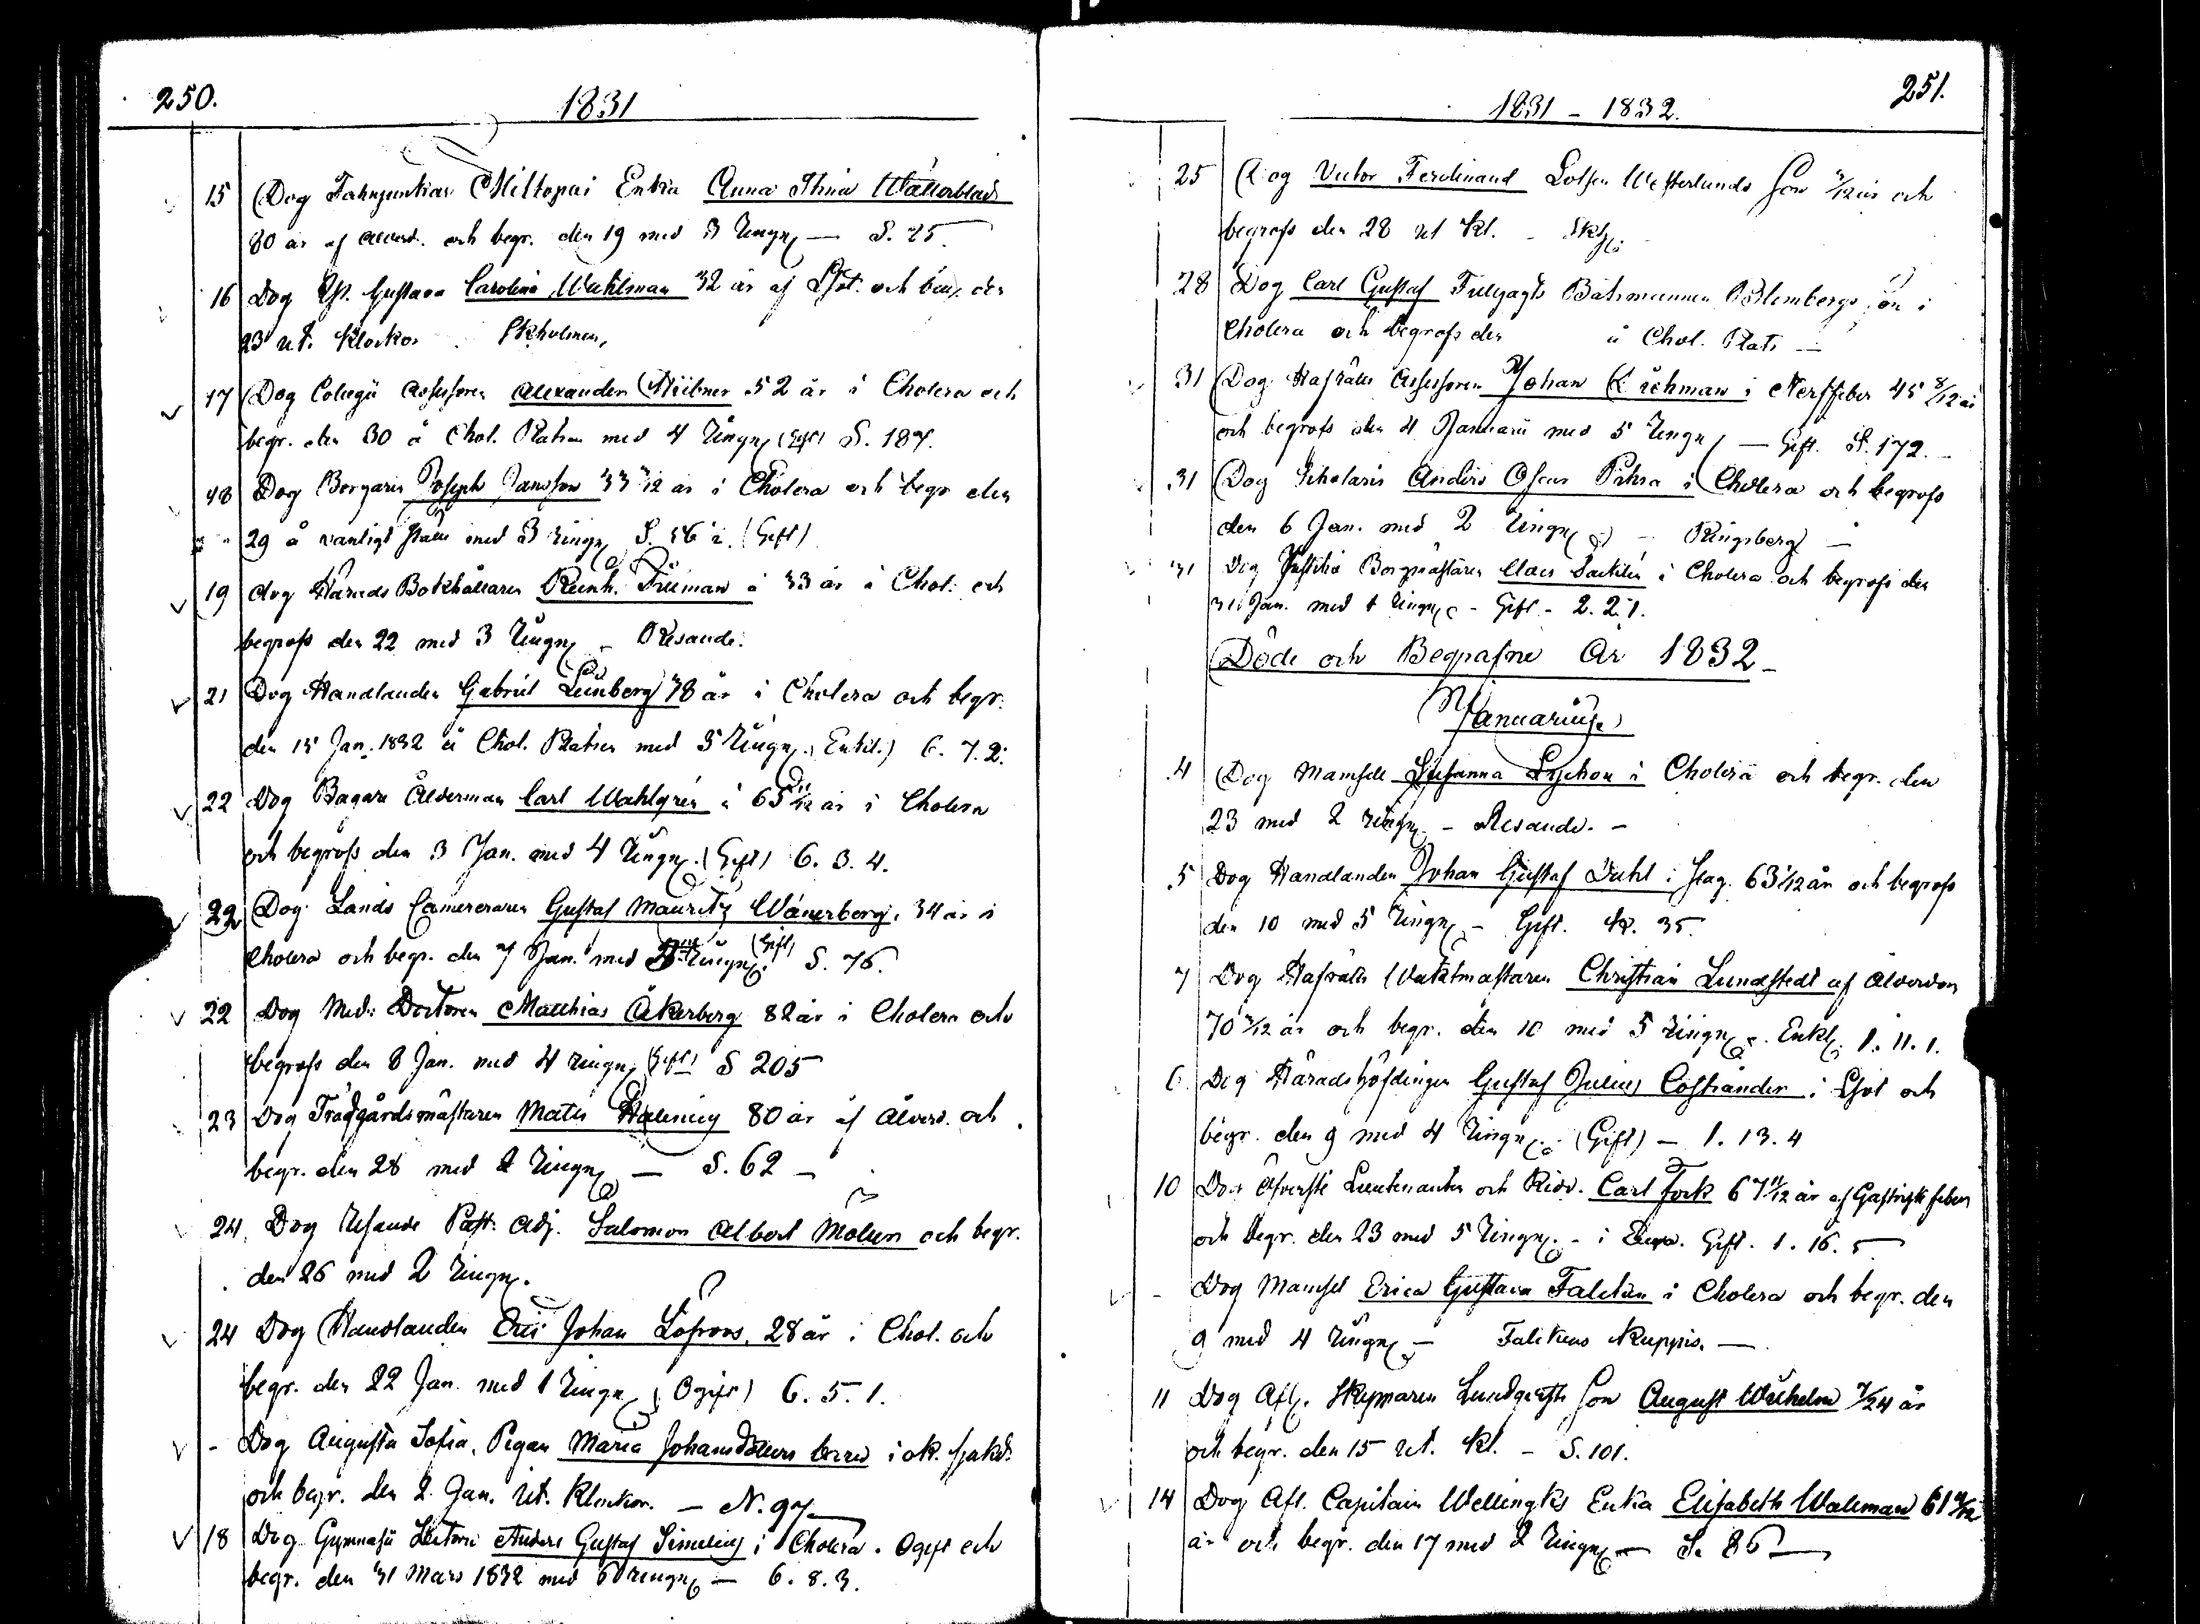 250.
1831
15 Dog Fahnjunkar Miltopai Enka Anna Stina Wätterblad
80 år af ålderd. och begr. den 19 med 3 Ringn. — S. 25
16 Dog Gustava Carolina Wahlman 32 år af och den
23 ut. Klockor. Skholmen,
17 Dog Collegii Assessoren Alexander Hübner 52 år i Cholera och
begr. den 30 å Chol. Platsen med 4 Ringn. (Gift) S. 187.
18 Dog Borgaren Joseph Jansson 33 7/12 år i Cholera och begr. den
29 å vanligt ställe med 3 ringn. S. (Gift)
19 dog Härads Bokhållaren Reinh. Friman å 33 år i Chol: och
begrofs den 22 med 3 Ringn. — Resande.
21 Dog Handlanden Gabriel 78 år i Cholera och begr.
den 15 Jan. 1832 å Chol. Platsen med 5 Ringn. (Enkl.) 6. 7. 2.
22 Dog Bagare Ålderman Carl Wahlgrén å 65 11/12 år i Cholera
och begrofs den 3 Jan. med 4 Ringn. (Gift) 6. 3. 4.
22 Dog Lands Camereraren Gustaf Mauritz Wänerberg, 34 år i
Cholera och begr. den 7 Jan. med Ringn. (Gift) S. 76.
22 Dog Med: Doctoren Matthias Åkerberg 82 år i Cholera och
begrofs den 8 Jan. med 4 ringn. (Gift) S 205
23 Dog Trädgårdsmästaren Mats 80 år af Ålderd. och
begr. den 28 med 2 Ringn. — S. 62 —
24. Dog Resande Past. Adj. Salomon Albert Molin och begr.
den 26 med 2 Ringn.
24 Dog Handlanden Eric Johan Löfroos, 28 år i Chol. och
begr. den 22 Jan. med 1 Ringn. (Ogift) 6. 5. 1.
- Dog Augusta Sofia, Pigan Maria Johansdotters barn i ok. sjukd.
och begr. den 2 Jan. ut. Klockor. — N. 97
18 Dog Gymnasii Lectorn Anders Gustaf Simelius i Cholera. Ogift och
begr. den 31 Mars 1832 med 6 ringn. — 6. 8. 3.
251.
1831 - 1832.
25 Dog Victor Ferdinand Lotsen Westerlunds Son /12 år och
begrofs den 28 ut Kl. -
28 Dog Carl Gustaf Båtsmannen Blombergs son i
Cholera och begrofs den å Chol. Plats —
31 Dog Hofrätts Assessoren Johan i Nerffeber 45 8/12 år
och begrofs den 4 Januarii med 5 Ringn. — Gift. S. 172.
31 Dog Scholaris Anders Oscar i Cholera och begrofs
den 6 Jan. med 2 Ringn. — Ringsberg —
31 Dog Justitie Borgmästaren Claes i Cholera och begrofs den
31 Jan. med Ringn. - Gift - 2. 2. 1.
Döde och Begrafne År 1832 -
Januarius
4 Dog Mamsell Susanna i Cholera och begr. den
23 med 2 ringn. - Resande. -
5 Dog Handlanden Johan Gustaf Dahl i slag. 63 1/12 år och begrofs
den 10 med 5 Ringn. - Gift. 35.
7 Dog Hofrätts Waktmästaren Christian Lundstedt af Ålderdom
70 7/12 år och begr. den 10 med 5 Ringn. Enkl. 1. 11. 1.
6 Dog Häradshöfdingen Gustaf Julius Costiander i och
begr. den 9 med 4 Ringn. (Gift) — 1. 13. 4
10 Dog Öfverste Lieutenanten och Ridd. Carl Fock 67 11/12 år af Gastrisk feber
och begr. den 23 med 5 Ringn. - i Gift. 1. 16. 5
- Dog Mamsel Erica Gustava Falckén i Cholera och begr. den
9 med 4 Ringn. — Falckens Kuppis. —
11 Dog Afl. Skepparen Lundqvists Son August Wilhelm 7/24 år
och begr. den 15 ut. Kl. - S. 101.
14 Dog Afl. Capitain Wellingks Enka Elisabeth Walman 61 /12
år och begr. den 17 med 2 Ringn. — S. 86 —